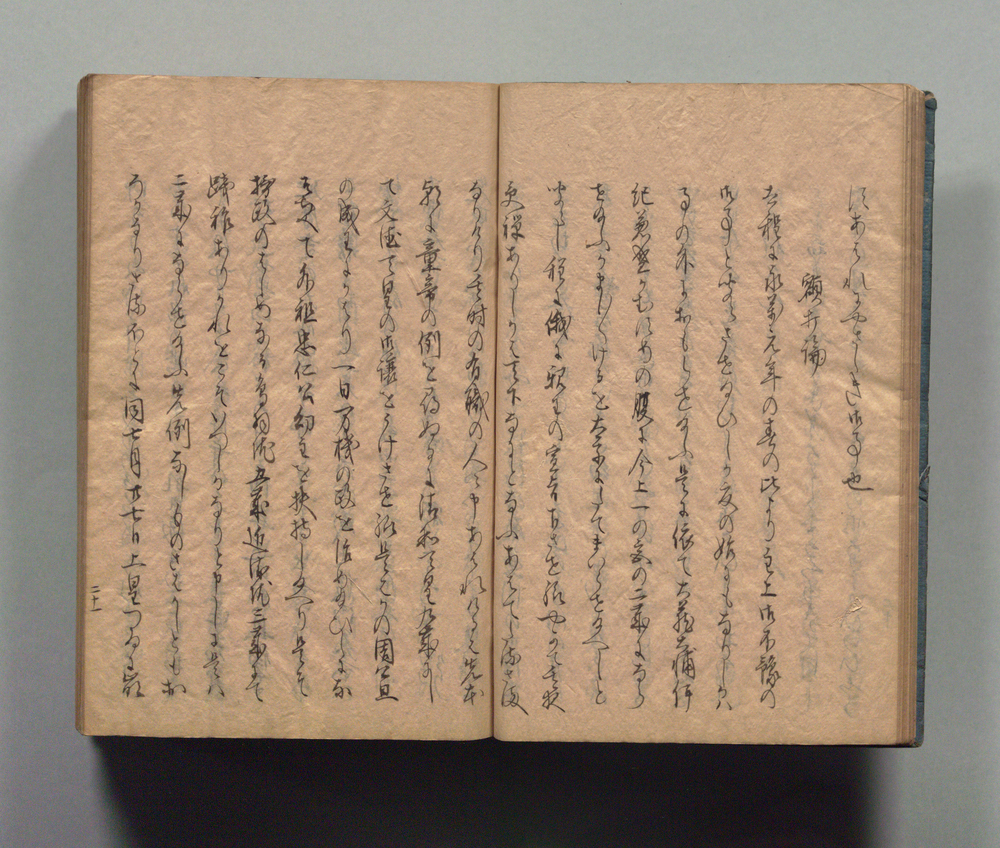 くあはれにやさしき御事也
額打論
去程に永萬元年の春の比より主上御不豫の
御事と聞えさせ給ひしか夏の始にもなりしかは
事の外におもらせ給ふ是に依て大蔵大輔伊
紀兼盛かむすめの腹に今上一の宮の二歳になら
せ給ふかましましけるを太子にたてまいらせ給へしと
聞えし程に俄に親王の宣旨下させ給やかて其夜
受禅ありしかは天下なにとなふあはてたるさま
なりけり其時の有職の人々申あはれけるは先本
朝に童帝の例を尋ぬるに清和天皇九歳にし
て文徳天皇の御譲をうけさせ給是はかの周公旦
の成王にかはり一日万機の政を治め給ひしになそ
らへて外祖忠仁公幼主を扶持し給へり是そ
摂政のはしめなる鳥羽院五歳近衛院三歳にて
踐祚ありかれをこそいつしかなりと申しに是は
二歳にならせ給ふ先例なしものさはかしともお
ろかなりさる程に同七月廿七日上皇つゐに崩
二十一